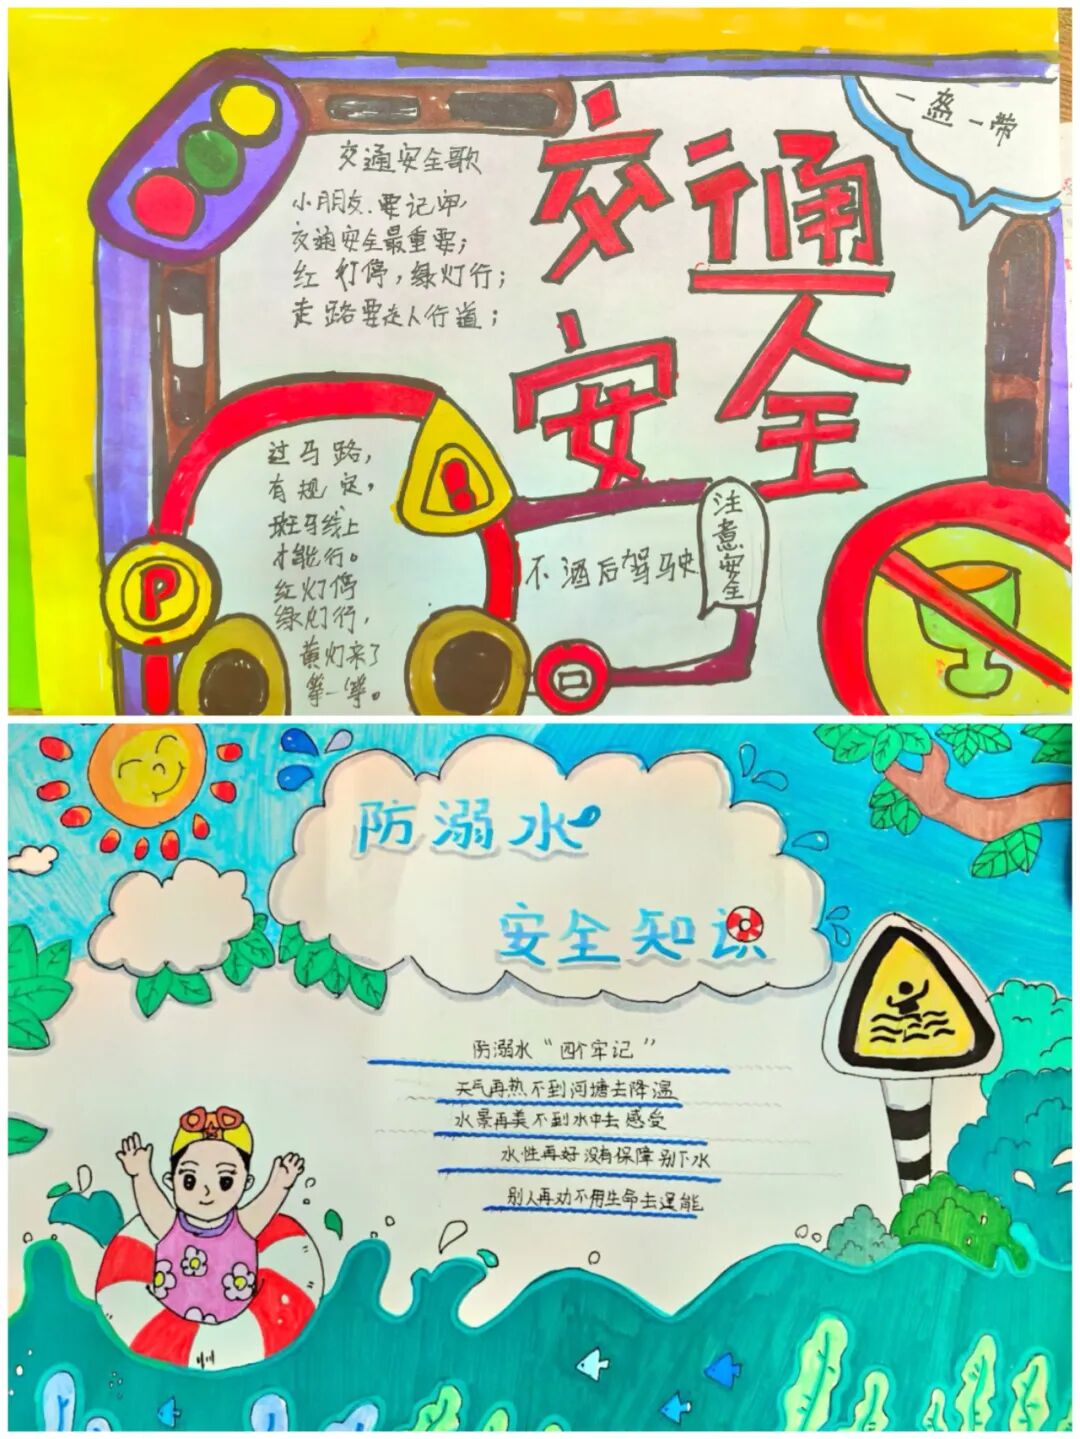 交通安全歌
小朋友,要记牢,
交通安全最重要;
红灯停,绿灯行;
走路要走人行道;
交通
安全
一盔一带
过马路,
有规定,
斑马线上
才能行。
红灯停
绿灯行,
黄灯来了
等一等。
P
不酒后驾驶
注意安全
防溺水
安全知识
防溺水“四个牢记”
天气再热不到河塘去降温
水景再美不到水中去感受
水性再好没有保障别下水
别人再劝不用生命去逞能